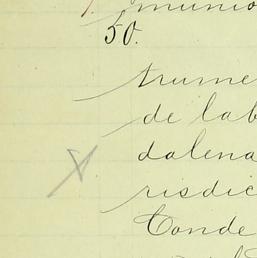 munio
50.
trume
de lab
dalena
risdic
Conde